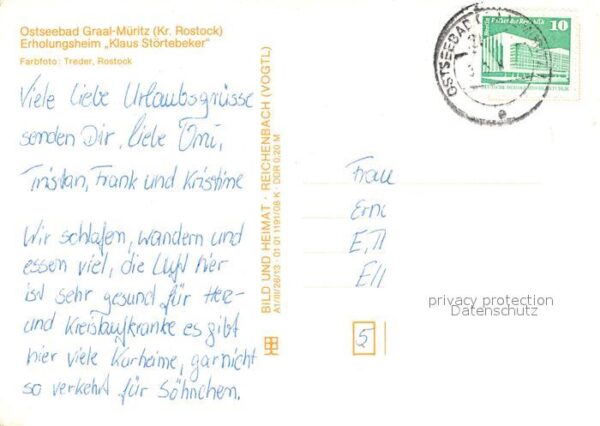 Ostseebad Graal-Müritz (Kr. Rostock)
Erholungsheim „Klaus Störtebeker"
Farbfoto: Treder, Rostock
Viele liebe Urlaubsgrüsse
senden Dir, liebe Omi,
Tristan, Frank und Kristine
Wir schlafen, wandern und
essen viel, die Luft hier
ist sehr gesund für Herz-
und Kreislaufkranke es gibt
hier viele Kurheime, gar nicht
so verkehrt für Söhnchen.
BILD UND HEIMAT · REICHENBACH (VOGTL)
A1/III/26/13 · 01 01 1191/08 K · DDR 0,20 M
OSTSEEBAD
10
e
Frau
Erni
Ell
5
privacy protection
Datenschutz